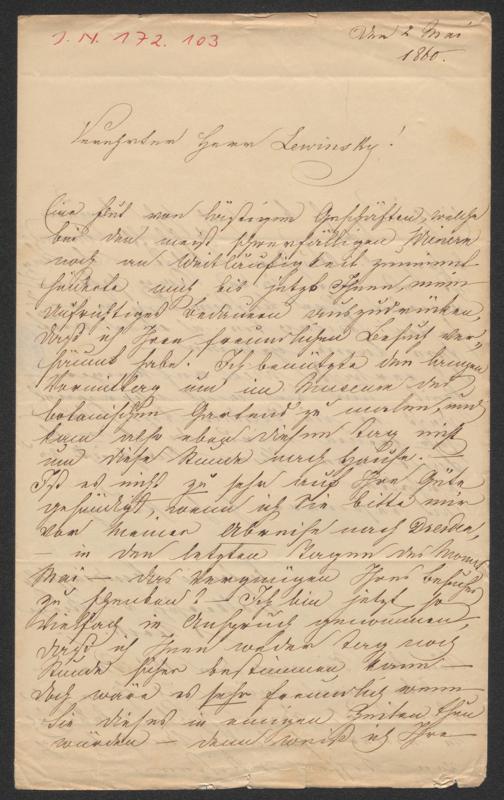 J.N. 172.103
Den 2 Mai
1860.
Verehrter Herr Lewinsky!
Eine Flut von lästigen Geschäften, welche
bei den meist schwerfälligen Wienern
noch an Weitläufigkeit zunimmt
hinderte mich bis jetzt Ihnen, mein
aufrichtiges Bedauern auszudrücken,
daß ich Ihren freundlichen Besuch ver-
säumt habe. Ich benützte den langen
Vormittag um im Museum des
botanischen Gartens zu malen, und
kam also eben diesen Tag nicht
um diese Stunde nach Hause. –
Ist es nicht zu sehr auf Ihre Güte
gesündigt, wenn ich Sie bitte mir
vor meiner Abreise nach Dresden,
– in den letzten Tagen des Monats
Mai – das Vergnügen Ihres Besuches
zu schenken? – Ich bin jetzt so
vielfach in Anspruch genommen,
daß ich Ihnen weder Tag noch
Stunde sicher bestimmen kann –
doch wäre es sehr freundlich wenn
Sie dieses in einigen Zeilen thun
würden – dann weiß ich Ihre